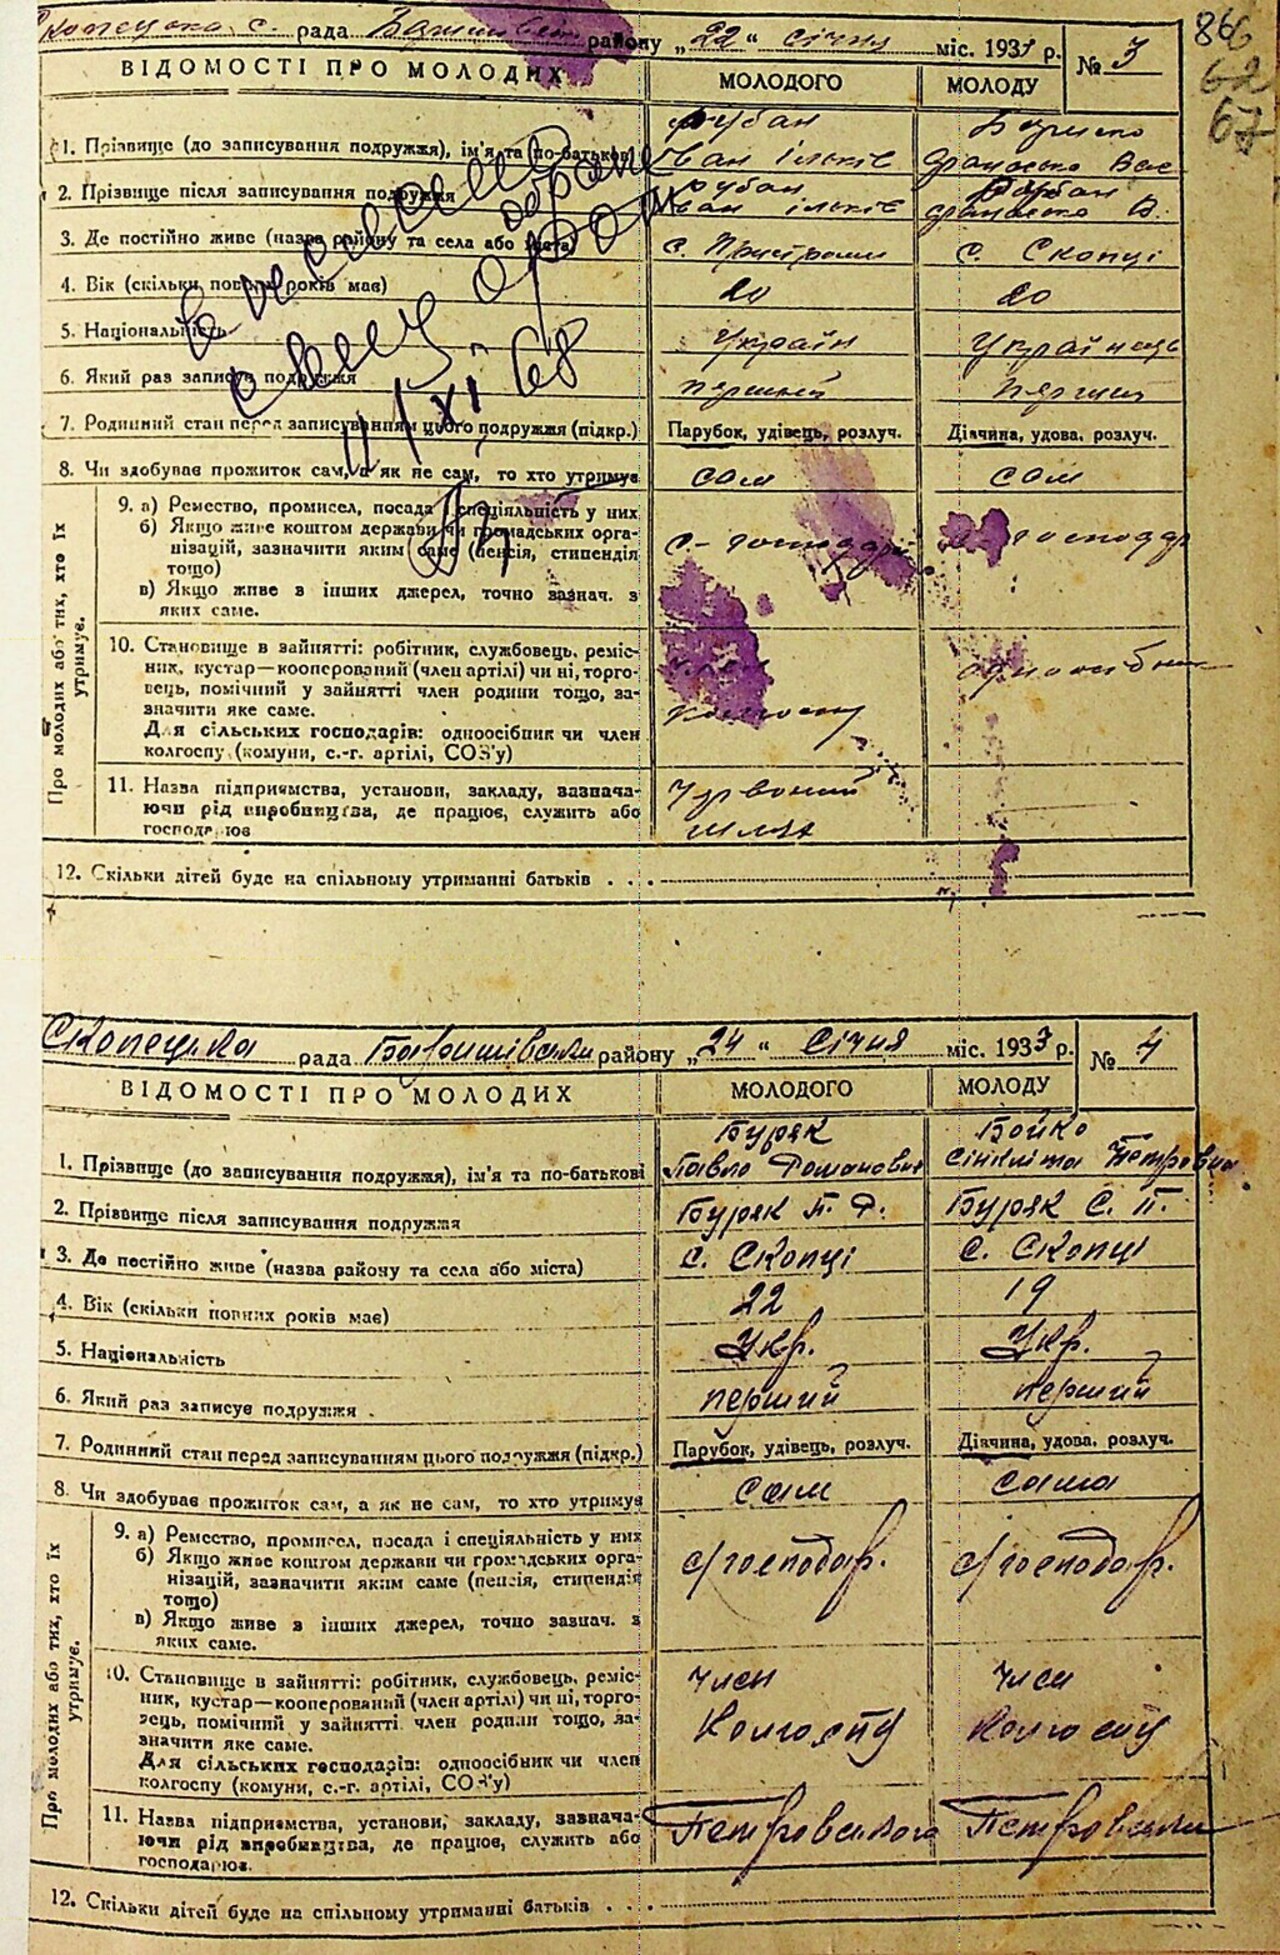 Скопецька с. рада району „22“ січня міс. 193 р. № 3
86
62
67
ВІДОМОСТІ ПРО МОЛОДИХ МОЛОДОГО МОЛОДУ
1. Прізвище (до записування подружжя), ім'я та по-батькові Рубан Іван Ільків
2. Прізвище після записування подружжя Рубан Іван Ільків
3. Де постійно живе (назва району та села або міста) с. Пристроми с. Скопці
4. Вік (скільки повних років має) 20 20
5. Національність Україн Українець
6. Який раз записує подружжя перший перший
7. Родинний стан перед записуванням цього подружжя (підкр.) Парубок, удівець, розлуч. Дівчина, удова, розлуч.
8. Чи здобував прожиток сам, а як не сам, то хто утримує сам сам
Про молодих або тих, хто їх утримує.
9. а) Ремество, промисел, посада і спеціяльність у них
б) Якщо живе коштом держави чи громадських орга-
нізацій, зазначити яким саме (пенсія, стипендія
тощо)
в) Якщо живе з інших джерел, точно зазнач. з
яких саме.
10. Становище в зайнятті: робітник, службовець, реміс-
ник, кустар—кооперований (член артілі) чи ні, торго-
вець, помічний у зайнятті член родини тощо, за-
значити яке саме.
Для сільських господарів: одноосібник чи член
колгоспу (комуни, с.-г. артілі, СОЗ'у)
член колгоспу одноосібник
11. Назва підприємства, установи, закладу, зазнача-
ючи рід виробництва, де працює, служить або
господарює
Червоний шлях
12. Скільки дітей буде на спільному утриманні батьків . . .
11/XI 68
Скопецька рада Баришівський району „24“ Січня міс. 1933 р. № 4
ВІДОМОСТІ ПРО МОЛОДИХ МОЛОДОГО МОЛОДУ
1. Прізвище (до записування подружжя), ім'я та по-батькові Буряк Павло Романович Бойко Сінклита Петровна
2. Прізвище після записування подружжя Буряк П. Р. Буряк С. П.
3. Де постійно живе (назва району та села або міста) с. Скопці с. Скопці
4. Вік (скільки повних років має) 22 19
5. Національність Укр. Укр.
6. Який раз записує подружжя перший перший
7. Родинний стан перед записуванням цього подружжя (підкр.) Парубок, удівець, розлуч. Дівчина, удова, розлуч.
8. Чи здобував прожиток сам, а як не сам, то хто утримує сам сама
Про молодих або тих, хто їх утримує.
9. а) Ремество, промисел, посада і спеціяльність у них
б) Якщо живе коштом держави чи громадських орга-
нізацій, зазначити яким саме (пенсія, стипендія
тощо)
в) Якщо живе з інших джерел, точно зазнач. з
яких саме.
с/господар. с/господар.
10. Становище в зайнятті: робітник, службовець, реміс-
ник, кустар—кооперований (член артілі) чи ні, торго-
вець, помічний у зайнятті член родини тощо, за-
значити яке саме.
Для сільських господарів: одноосібник чи член
колгоспу (комуни, с.-г. артілі, СОЗ'у)
член Колгоспу член Колгоспу
11. Назва підприємства, установи, закладу, зазнача-
ючи рід виробництва, де працює, служить або
господарює.
Петровського
12. Скільки дітей буде на спільному утриманні батьків . . .